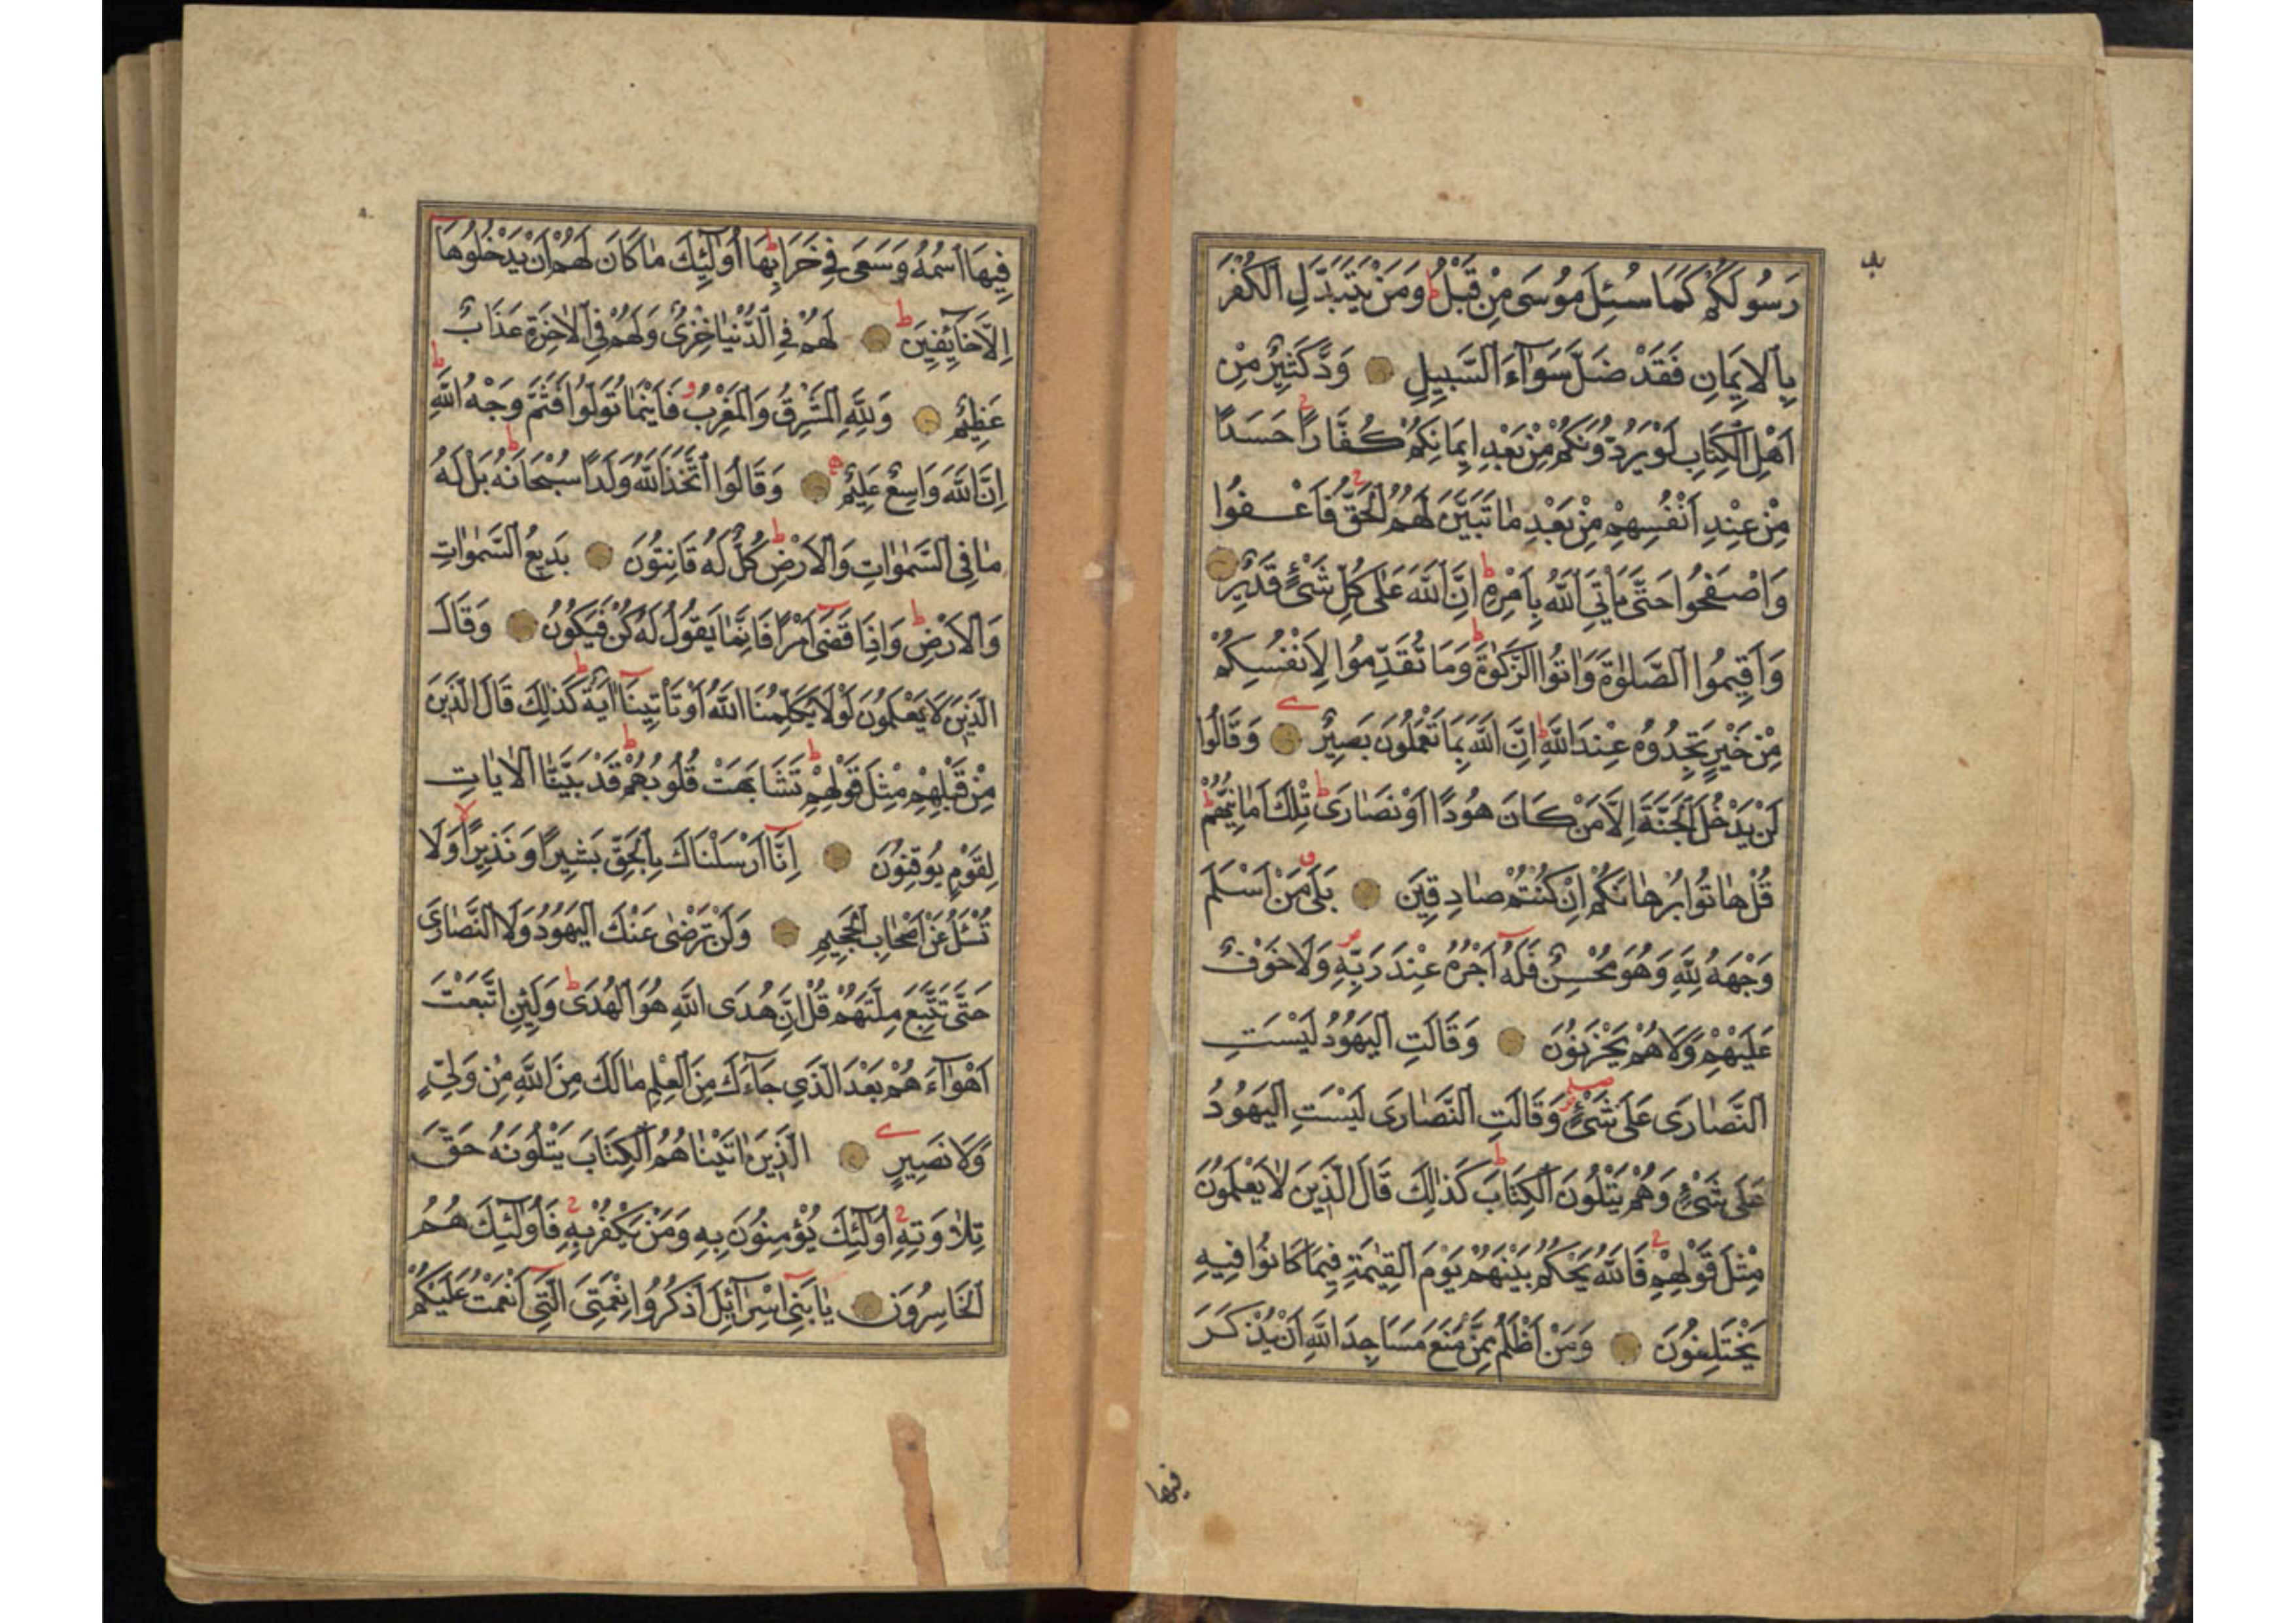 رَسُولَكُمْ كَمَا سُئِلَ مُوسَى مِنْ قَبْلُ ط وَمَنْ يَتَبَدَّلِ الْكُفْرَ
بِالْاِيمَانِ فَقَدْ ضَلَّ سَوَاءَ السَّبِيلِ وَدَّ كَثِيرٌ مِنْ
اَهْلِ الْكِتَابِ لَوْ يَرُدُّونَكُمْ مِنْ بَعْدِ اِيمَانِكُمْ كُفَّارًا ج حَسَدًا
مِنْ عِنْدِ اَنْفُسِهِمْ مِنْ بَعْدِ مَا تَبَيَّنَ لَهُمُ الْحَقُّ ج فَاعْفُوا
وَاصْفَحُوا حَتَّى يَأْتِيَ اللّٰهُ بِاَمْرِهِ ط اِنَّ اللّٰهَ عَلَى كُلِّ شَيْءٍ قَدِيرٌ
وَاَقِيمُوا الصَّلٰوةَ وَاٰتُوا الزَّكٰوةَ ط وَمَا تُقَدِّمُوا لِاَنْفُسِكُمْ
مِنْ خَيْرٍ تَجِدُوهُ عِنْدَ اللّٰهِ ط اِنَّ اللّٰهَ بِمَا تَعْمَلُونَ بَصِيرٌ وَقَالُوا
لَنْ يَدْخُلَ الْجَنَّةَ اِلَّا مَنْ كَانَ هُودًا اَوْ نَصَارَى ط تِلْكَ اَمَانِيُّهُمْ ط
قُلْ هَاتُوا بُرْهَانَكُمْ اِنْ كُنْتُمْ صَادِقِينَ بَلَى مَنْ اَسْلَمَ
وَجْهَهُ لِلّٰهِ وَهُوَ مُحْسِنٌ فَلَهُ اَجْرُهُ عِنْدَ رَبِّهِ وَلَا خَوْفٌ
عَلَيْهِمْ وَلَا هُمْ يَحْزَنُونَ وَقَالَتِ الْيَهُودُ لَيْسَتِ
النَّصَارَى عَلَى شَيْءٍ وَقَالَتِ النَّصَارَى لَيْسَتِ الْيَهُودُ
عَلَى شَيْءٍ وَهُمْ يَتْلُونَ الْكِتَابَ ط كَذٰلِكَ قَالَ الَّذِينَ لَا يَعْلَمُونَ
مِثْلَ قَوْلِهِمْ ج فَاللّٰهُ يَحْكُمُ بَيْنَهُمْ يَوْمَ الْقِيٰمَةِ فِيمَا كَانُوا فِيهِ
يَخْتَلِفُونَ وَمَنْ اَظْلَمُ مِمَّنْ مَنَعَ مَسَاجِدَ اللّٰهِ اَنْ يُذْكَرَ
فيها
فِيهَا اسْمُهُ وَسَعَى فِي خَرَابِهَا ط اُولٰئِكَ مَا كَانَ لَهُمْ اَنْ يَدْخُلُوهَا
اِلَّا خَائِفِينَ ط لَهُمْ فِي الدُّنْيَا خِزْيٌ وَلَهُمْ فِي الْاٰخِرَةِ عَذَابٌ
عَظِيمٌ وَلِلّٰهِ الْمَشْرِقُ وَالْمَغْرِبُ فَاَيْنَمَا تُوَلُّوا فَثَمَّ وَجْهُ اللّٰهِ ط
اِنَّ اللّٰهَ وَاسِعٌ عَلِيمٌ وَقَالُوا اتَّخَذَ اللّٰهُ وَلَدًا سُبْحَانَهُ ط بَلْ لَهُ
مَا فِي السَّمٰوَاتِ وَالْاَرْضِ ط كُلٌّ لَهُ قَانِتُونَ بَدِيعُ السَّمٰوَاتِ
وَالْاَرْضِ ط وَاِذَا قَضَى اَمْرًا فَاِنَّمَا يَقُولُ لَهُ كُنْ فَيَكُونُ وَقَالَ
الَّذِينَ لَا يَعْلَمُونَ لَوْلَا يُكَلِّمُنَا اللّٰهُ اَوْ تَأْتِينَا اٰيَةٌ ط كَذٰلِكَ قَالَ الَّذِينَ
مِنْ قَبْلِهِمْ مِثْلَ قَوْلِهِمْ ط تَشَابَهَتْ قُلُوبُهُمْ ط قَدْ بَيَّنَّا الْاٰيَاتِ
لِقَوْمٍ يُوقِنُونَ اِنَّا اَرْسَلْنَاكَ بِالْحَقِّ بَشِيرًا وَنَذِيرًا لا وَلَا
تُسْئَلُ عَنْ اَصْحَابِ الْجَحِيمِ وَلَنْ تَرْضَى عَنْكَ الْيَهُودُ وَلَا النَّصَارَى
حَتَّى تَتَّبِعَ مِلَّتَهُمْ قُلْ اِنَّ هُدَى اللّٰهِ هُوَ الْهُدَى ط وَلَئِنِ اتَّبَعْتَ
اَهْوَاءَهُمْ بَعْدَ الَّذِي جَاءَكَ مِنَ الْعِلْمِ مَا لَكَ مِنَ اللّٰهِ مِنْ وَلِيٍّ
وَلَا نَصِيرٍ الَّذِينَ اٰتَيْنَاهُمُ الْكِتَابَ يَتْلُونَهُ حَقَّ
تِلَاوَتِهِ ج اُولٰئِكَ يُؤْمِنُونَ بِهِ وَمَنْ يَكْفُرْ بِهِ ج فَاُولٰئِكَ هُمُ
الْخَاسِرُونَ يَا بَنِي اِسْرَائِلَ اذْكُرُوا نِعْمَتِيَ الَّتِي اَنْعَمْتُ عَلَيْكُمْ